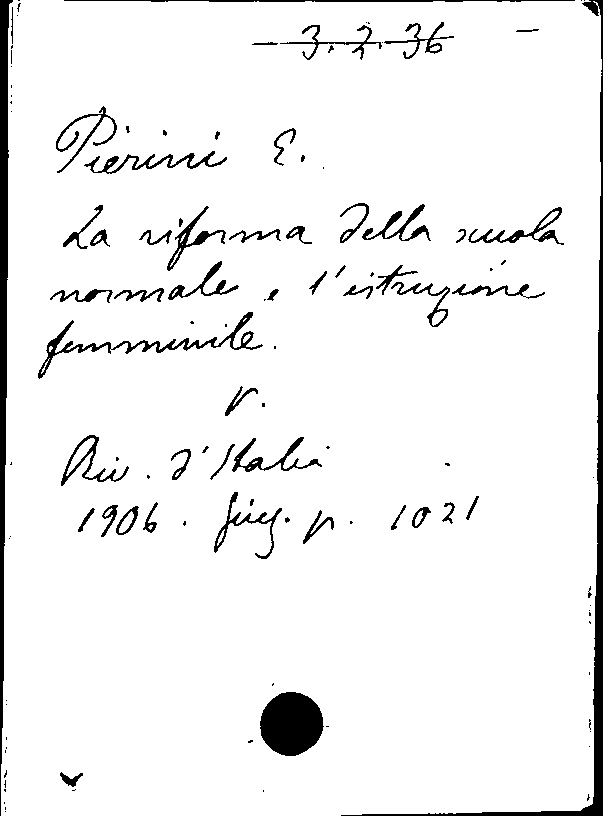 3. 2. 36
Pierini E.
La riforma della scuola
normale e l'istruzione
femminile.
v.
Riv. d'Italia
1906. Giug. p. 1021